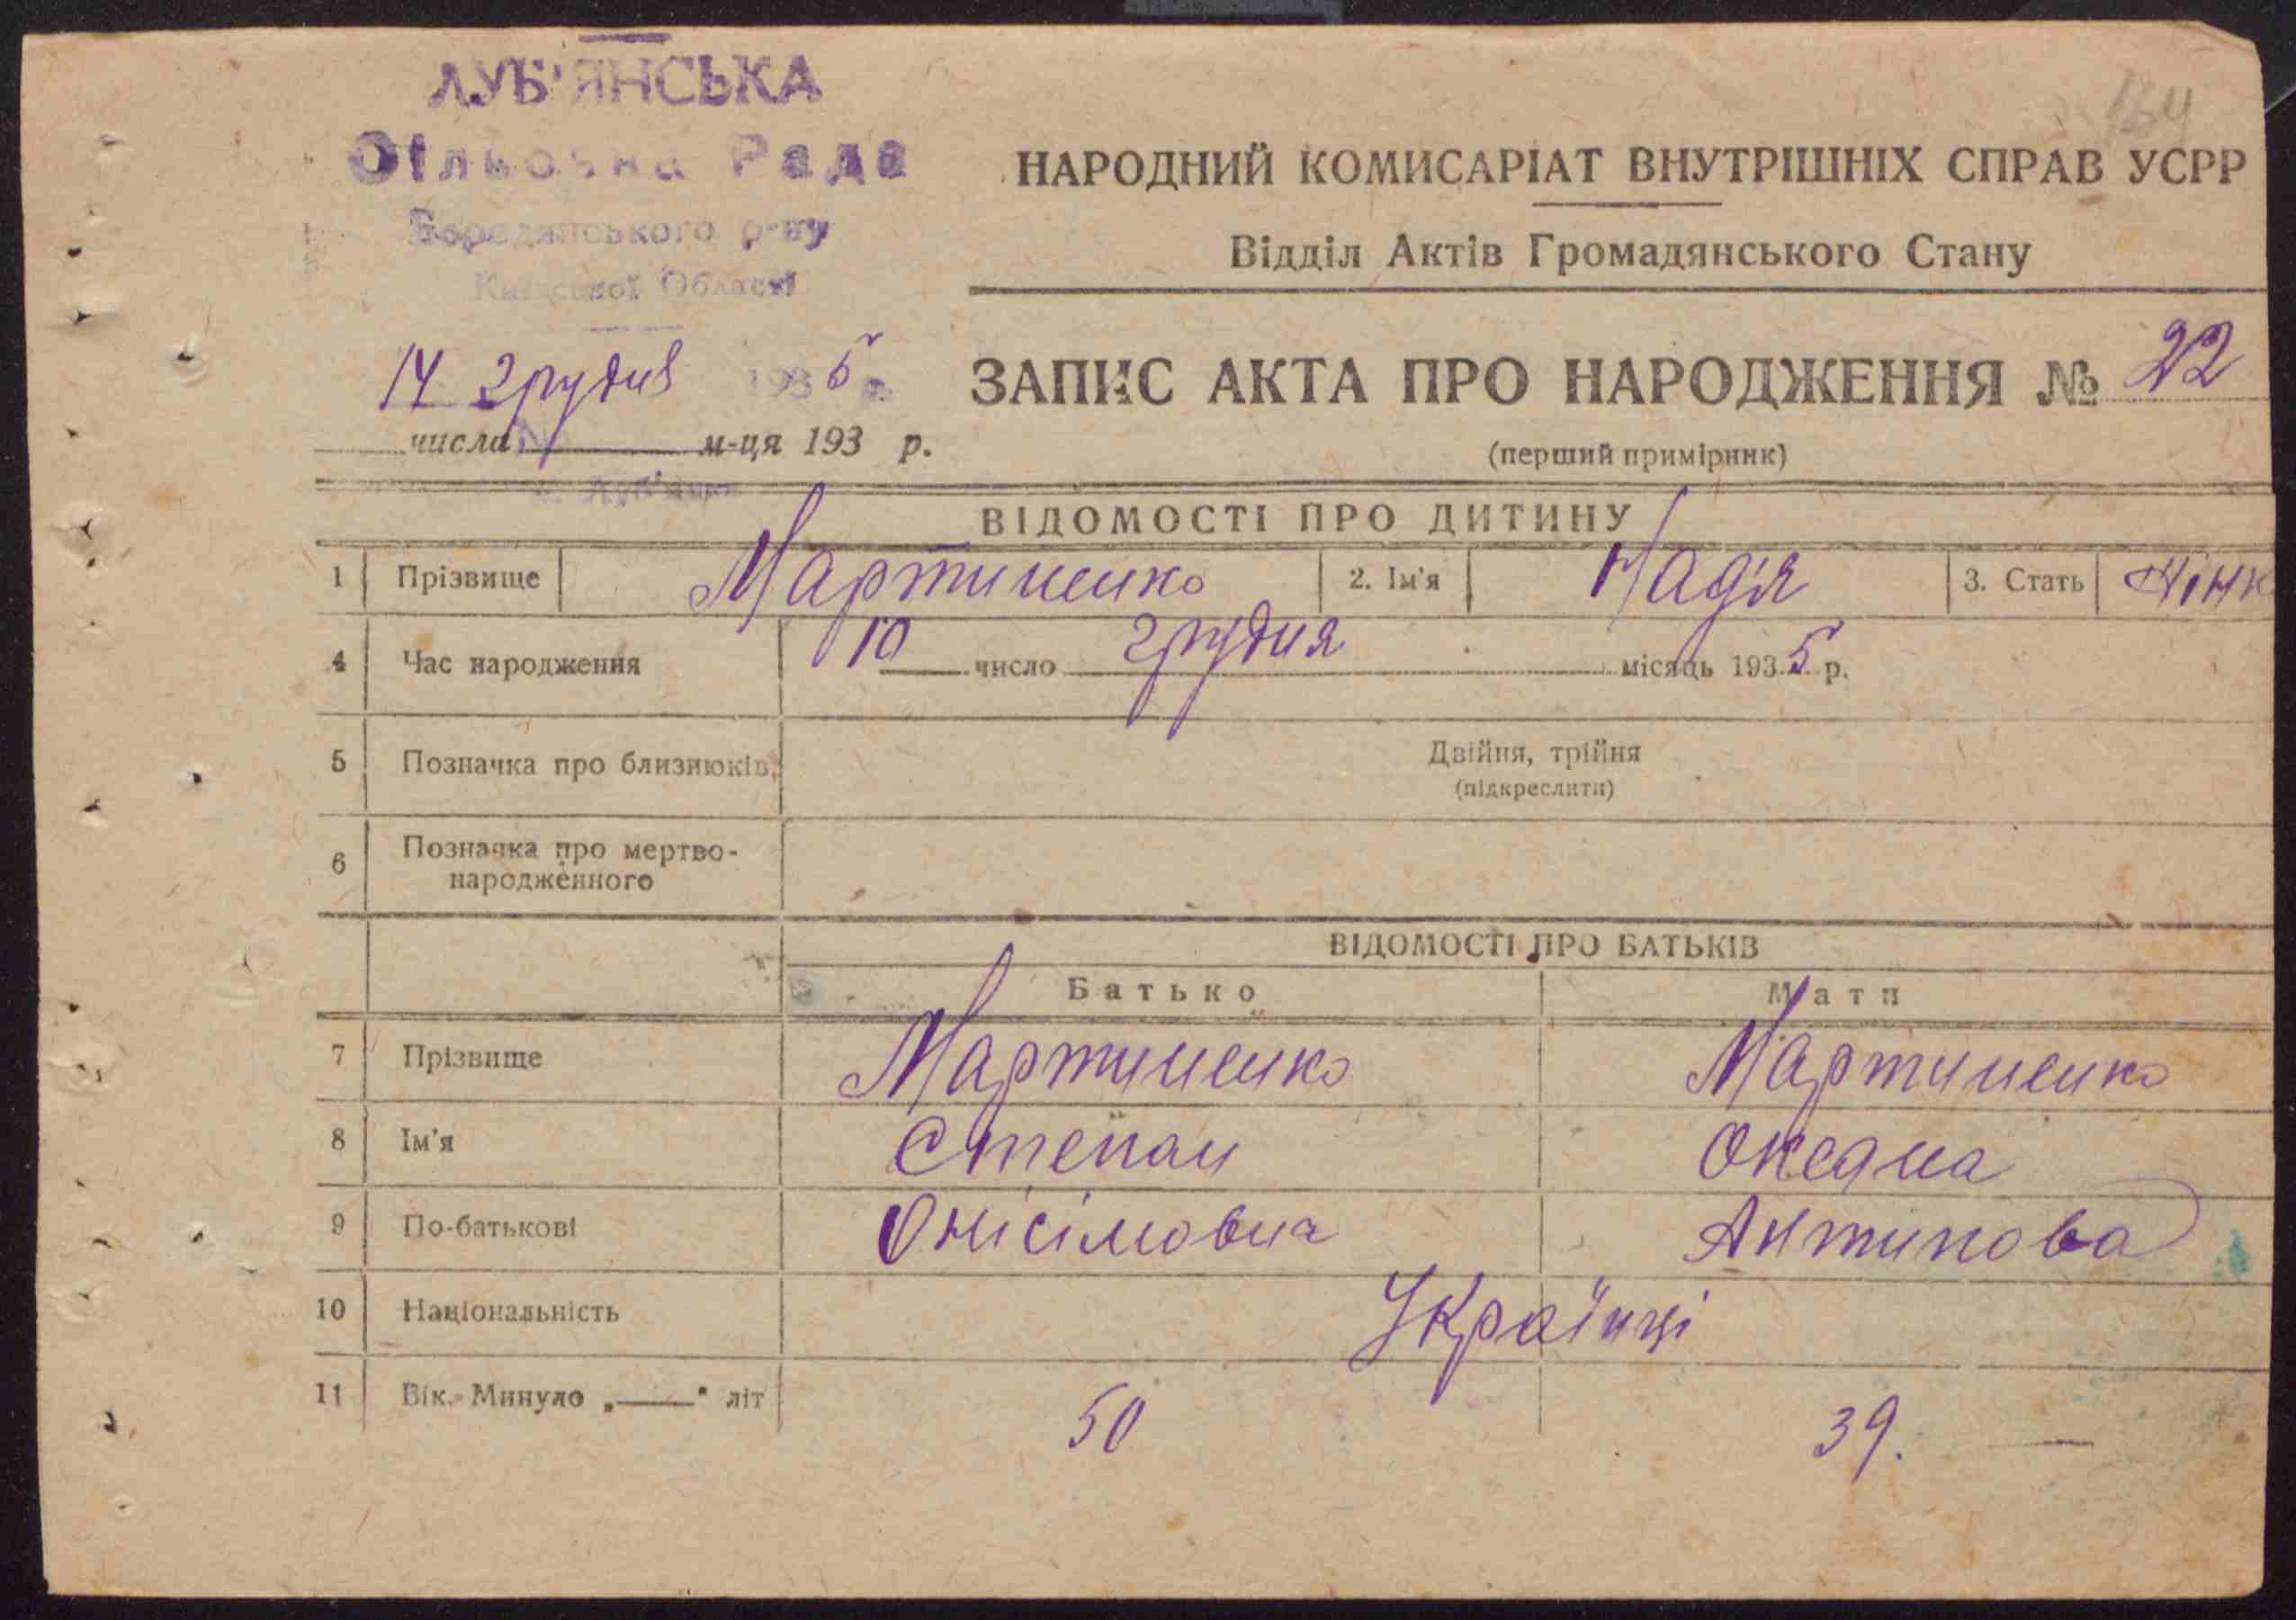 164
ЛУБ'ЯНСЬКА
Сільська Рада
Бородянського р-ну
Київської Області
14 грудня 1935 р.
числа м-ця 193 р.
с. Луб'янка
НАРОДНИЙ КОМИСАРІАТ ВНУТРІШНІХ СПРАВ УСРР
Відділ Актів Громадянського Стану
ЗАПИС АКТА ПРО НАРОДЖЕННЯ № 22
(перший примірник)
ВІДОМОСТІ ПРО ДИТИНУ
1 Прізвище Мартиненко 2. Ім'я Надія 3. Стать жінк
4 Час народження 10 число грудня місяць 1935 р.
5 Позначка про близнюків Двійня, трійня
(підкреслити)
6 Позначка про мертво-
народженного
ВІДОМОСТІ ПРО БАТЬКІВ
Батько Мати
7 Прізвище Мартиненко Мартиненко
8 Ім'я Степан Оксана
9 По-батькові Онісімович Антипова
10 Національність Українці
11 Вік. Минуло „——" літ 50 39.